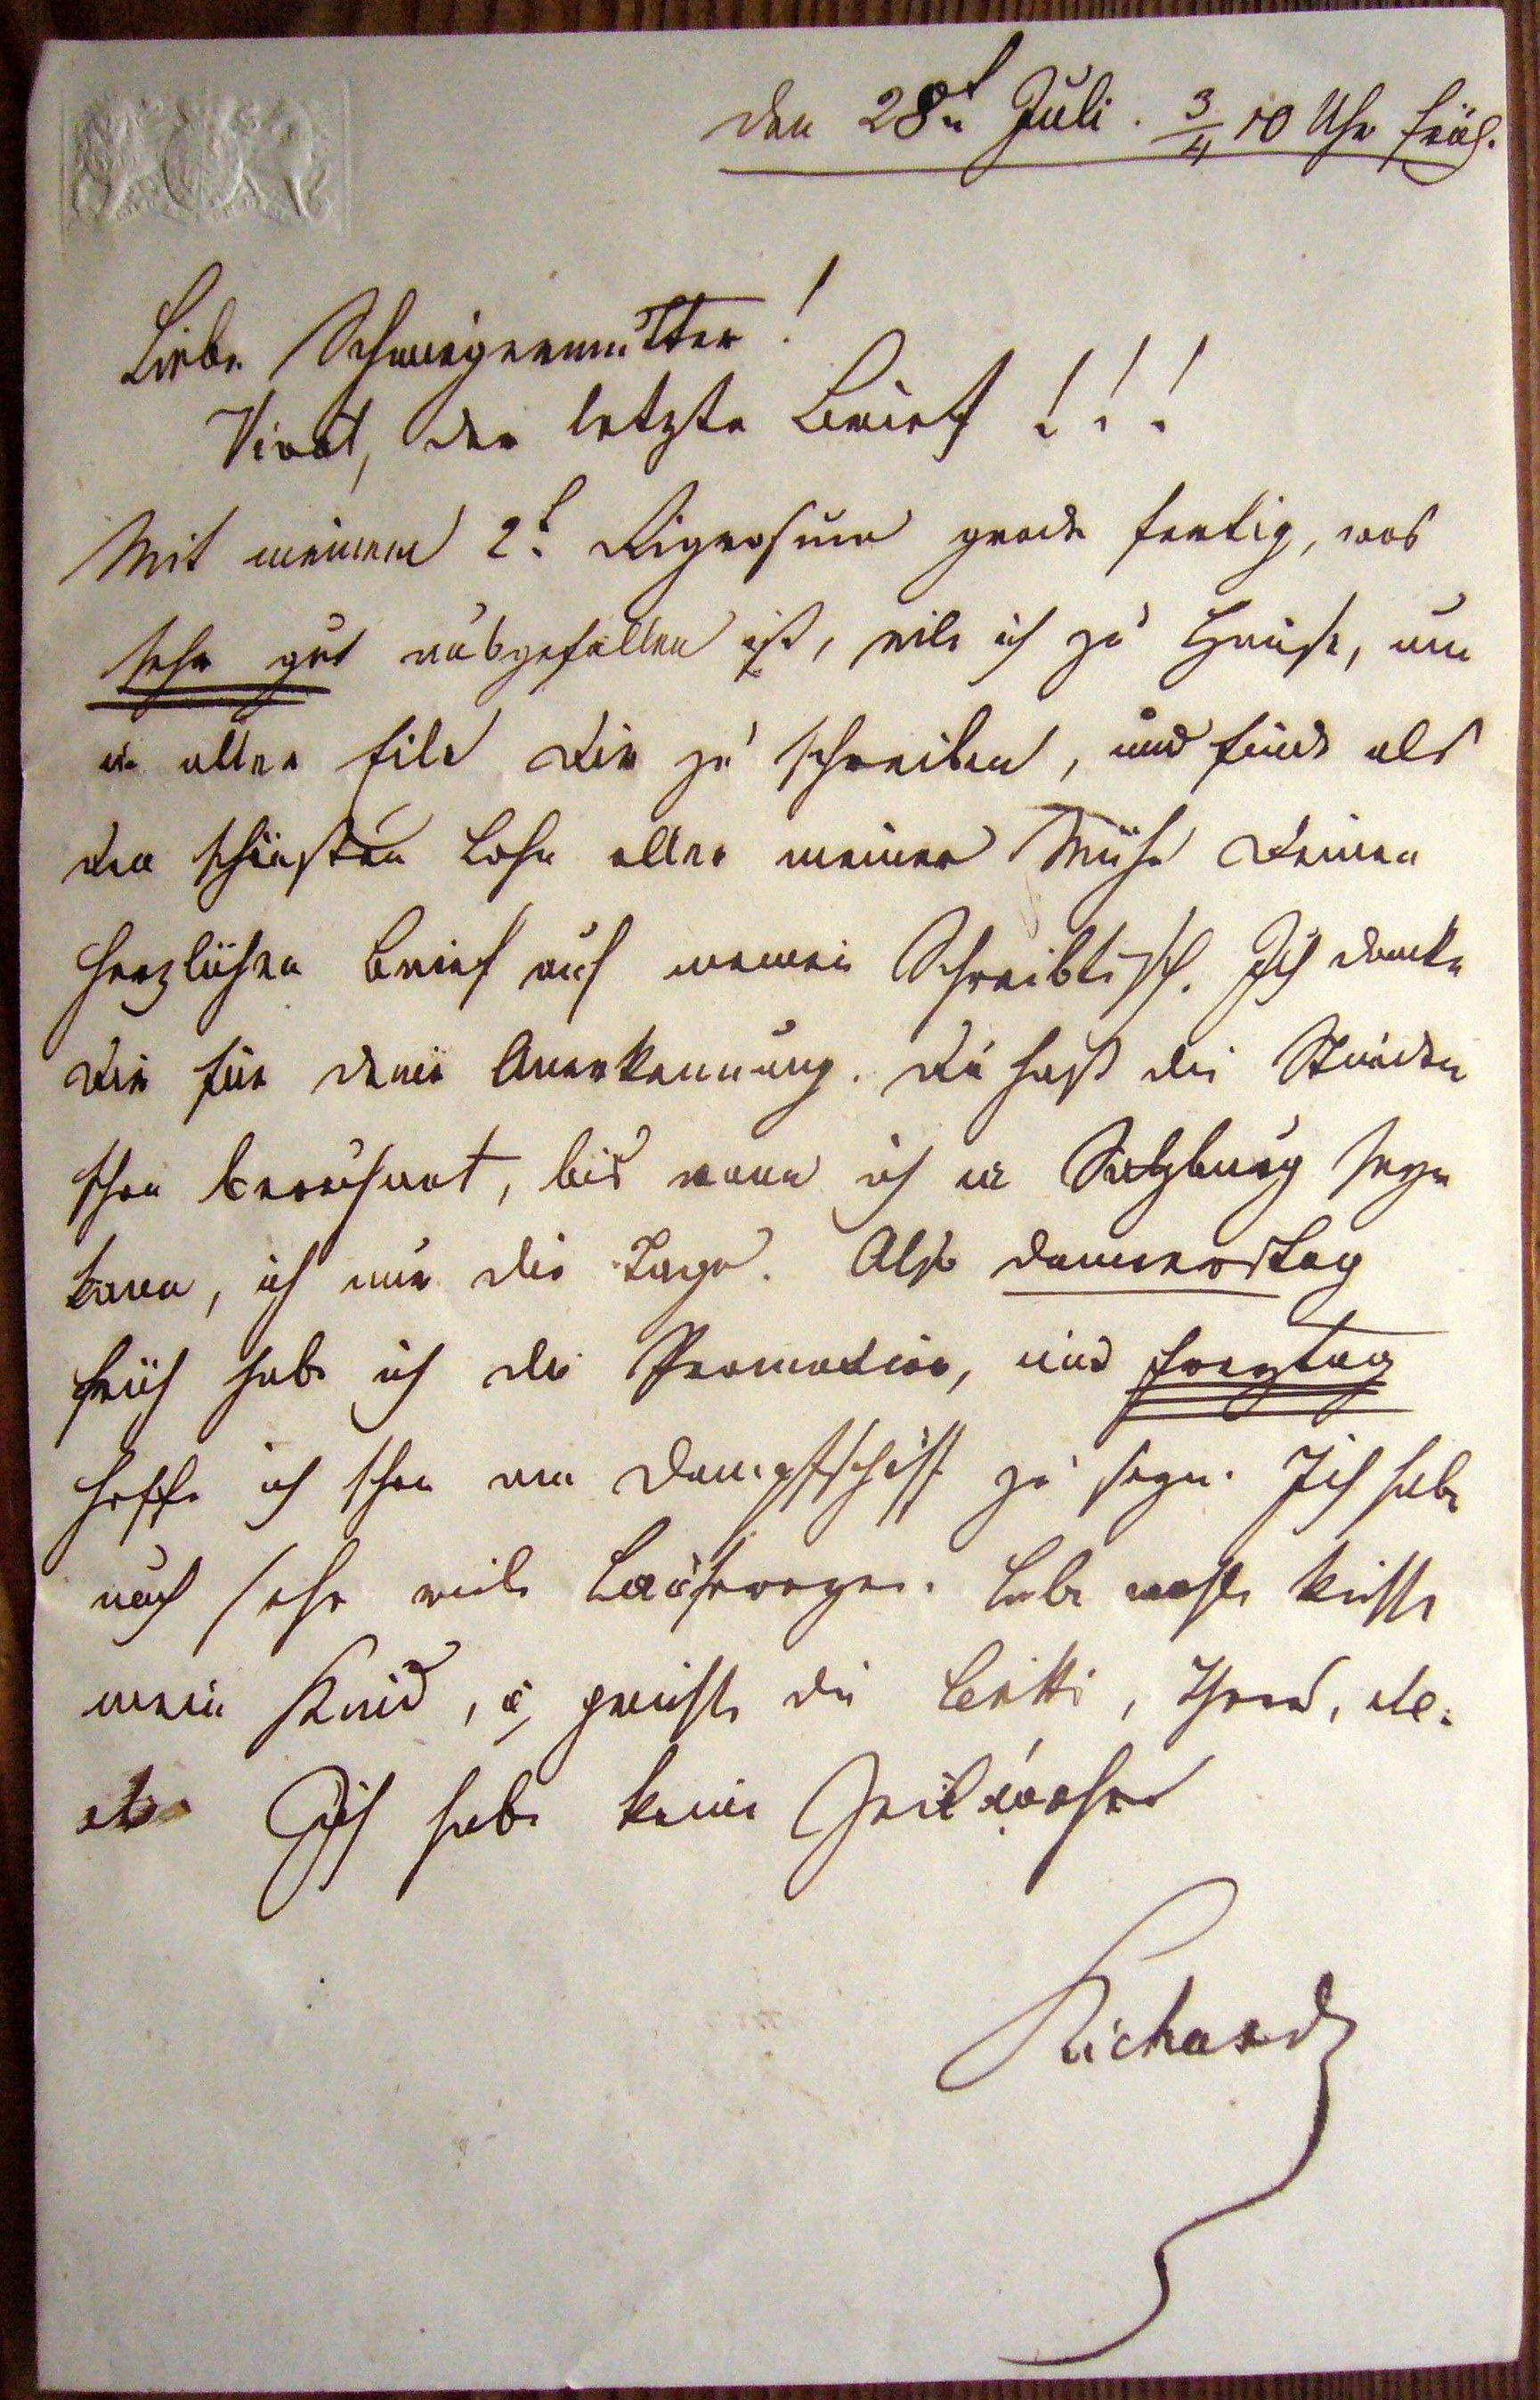 den 28t Juli. 3/4 10 Uhr früh.
Liebe Schwiegermutter!
Vivat, der letzte Brief!!!
Mit meinem 2t Rigorosum grade fertig, was
sehr gut ausgefallen ist, eile ich zu Hause, um
in aller Eile Dir zu schreiben, und finde als
den schönsten Lohn aller meiner Mühe Deinen
herzlichen Brief auf meinem Schreibtisch. Ich danke
Dir für deine Anerkennung. Du hast die Stunden
schon berechnet, bis wann ich in Salzburg seyn
kann, ich nur die Tage. Also Donnerstag
früh habe ich die Promotion, und Freytag
hoffe ich schon am Dampfschiff zu seyn. Ich habe
noch sehr viele Laufereyen. Lebe wohl, küsse
mein Kind, & grüsse die Betti, etc.
etc Ich habe keine Zeit mehr
Richard